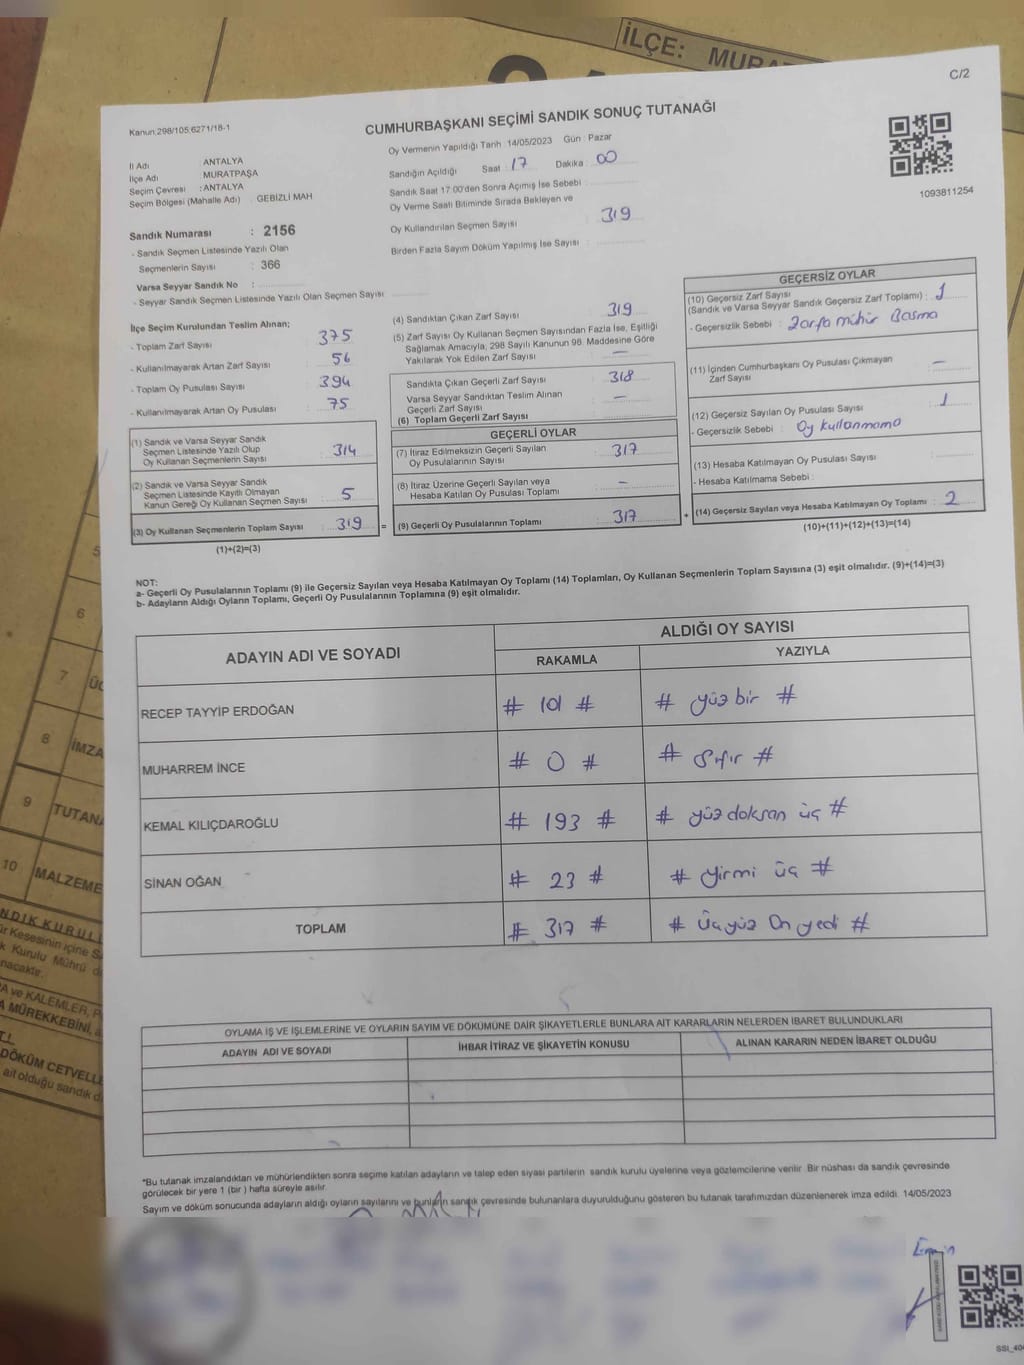 İLÇE: MURAT
C/2
Kanun:298/105,6271/18-1
CUMHURBAŞKANI SEÇİMİ SANDIK SONUÇ TUTANAĞI
1093811254
İl Adı : ANTALYA
İlçe Adı : MURATPAŞA
Seçim Çevresi : ANTALYA
Seçim Bölgesi (Mahalle Adı) : GEBİZLİ MAH
Oy Vermenin Yapıldığı Tarih : 14/05/2023 Gün : Pazar
Sandığın Açıldığı Saat : 17 Dakika : 00
Sandık Saat 17:00'den Sonra Açımış İse Sebebi :
Oy Verme Saati Bitiminde Sırada Bekleyen ve
Oy Kullandırılan Seçmen Sayısı : 319
Birden Fazla Sayım Döküm Yapılmış İse Sayısı :
Sandık Numarası : 2156
- Sandık Seçmen Listesinde Yazılı Olan
Seçmenlerin Sayısı : 366
Varsa Seyyar Sandık No :
- Seyyar Sandık Seçmen Listesinde Yazılı Olan Seçmen Sayısı :
İlçe Seçim Kurulundan Teslim Alınan;
- Toplam Zarf Sayısı : 375
- Kullanılmayarak Artan Zarf Sayısı : 56
- Toplam Oy Pusulası Sayısı : 394
- Kullanılmayarak Artan Oy Pusulası : 75
(1) Sandık ve Varsa Seyyar Sandık
Seçmen Listesinde Yazılı Olup
Oy Kullanan Seçmenlerin Sayısı : 314
(2) Sandık ve Varsa Seyyar Sandık
Seçmen Listesinde Kayıtlı Olmayan
Kanun Gereği Oy Kullanan Seçmen Sayısı : 5
(3) Oy Kullanan Seçmenlerin Toplam Sayısı : 319 =
(1)+(2)=(3)
(4) Sandıktan Çıkan Zarf Sayısı : 319
(5) Zarf Sayısı Oy Kullanan Seçmen Sayısından Fazla İse, Eşitliği
Sağlamak Amacıyla, 298 Sayılı Kanunun 98. Maddesine Göre
Yakılarak Yok Edilen Zarf Sayısı : —
Sandıkta Çıkan Geçerli Zarf Sayısı : 318
Varsa Seyyar Sandıktan Teslim Alınan
Geçerli Zarf Sayısı : —
(6) Toplam Geçerli Zarf Sayısı
GEÇERLİ OYLAR
(7) İtiraz Edilmeksizin Geçerli Sayılan
Oy Pusulalarının Sayısı : 317
(8) İtiraz Üzerine Geçerli Sayılan veya
Hesaba Katılan Oy Pusulası Toplamı : —
(9) Geçerli Oy Pusulalarının Toplamı : 317 +
GEÇERSİZ OYLAR
(10) Geçersiz Zarf Sayısı
(Sandık ve Varsa Seyyar Sandık Geçersiz Zarf Toplamı) : 1
- Geçersizlik Sebebi : Zarfa mühür Basma
(11) İçinden Cumhurbaşkanı Oy Pusulası Çıkmayan
Zarf Sayısı : —
(12) Geçersiz Sayılan Oy Pusulası Sayısı : 1
- Geçersizlik Sebebi : Oy kullanmama
(13) Hesaba Katılmayan Oy Pusulası Sayısı :
- Hesaba Katılmama Sebebi :
(14) Geçersiz Sayılan veya Hesaba Katılmayan Oy Toplamı : 2
(10)+(11)+(12)+(13)=(14)
NOT:
a- Geçerli Oy Pusulalarının Toplamı (9) ile Geçersiz Sayılan veya Hesaba Katılmayan Oy Toplamı (14) Toplamları, Oy Kullanan Seçmenlerin Toplam Sayısına (3) eşit olmalıdır. (9)+(14)=(3)
b- Adayların Aldığı Oyların Toplamı, Geçerli Oy Pusulalarının Toplamına (9) eşit olmalıdır.
ADAYIN ADI VE SOYADI
ALDIĞI OY SAYISI
RAKAMLA YAZIYLA
RECEP TAYYİP ERDOĞAN # 101 # # yüz bir #
MUHARREM İNCE # 0 # # Sıfır #
KEMAL KILIÇDAROĞLU # 193 # # yüz doksan üç #
SİNAN OĞAN # 23 # # yirmi üç #
TOPLAM # 317 # # Üçyüz On yedi #
OYLAMA İŞ VE İŞLEMLERİNE VE OYLARIN SAYIM VE DÖKÜMÜNE DAİR ŞİKAYETLERLE BUNLARA AİT KARARLARIN NELERDEN İBARET BULUNDUKLARI
ADAYIN ADI VE SOYADI İHBAR İTİRAZ VE ŞİKAYETİN KONUSU ALINAN KARARIN NEDEN İBARET OLDUĞU
*Bu tutanak imzalandıktan ve mühürlendikten sonra seçime katılan adayların ve talep eden siyasi partilerin sandık kurulu üyelerine veya gözlemcilerine verilir. Bir nüshası da sandık çevresinde
görülecek bir yere 1 (bir ) hafta süreyle asılır.
Sayım ve döküm sonucunda adayların aldığı oyların sayılarını ve bunların sandık çevresinde bulunanlara duyurulduğunu gösteren bu tutanak tarafımızdan düzenlenerek imza edildi. 14/05/2023
5
6
7 ÜÇ
8 İMZA
9 TUTANA
10 MALZEME
NDIK KURULU
ür Kesesinin içine S
k Kurulu Mührü d
nacaktır.
A ve KALEMLER, P
A MÜREKKEBİNİ, a
DÖKÜM CETVELLE
ait olduğu sandık d